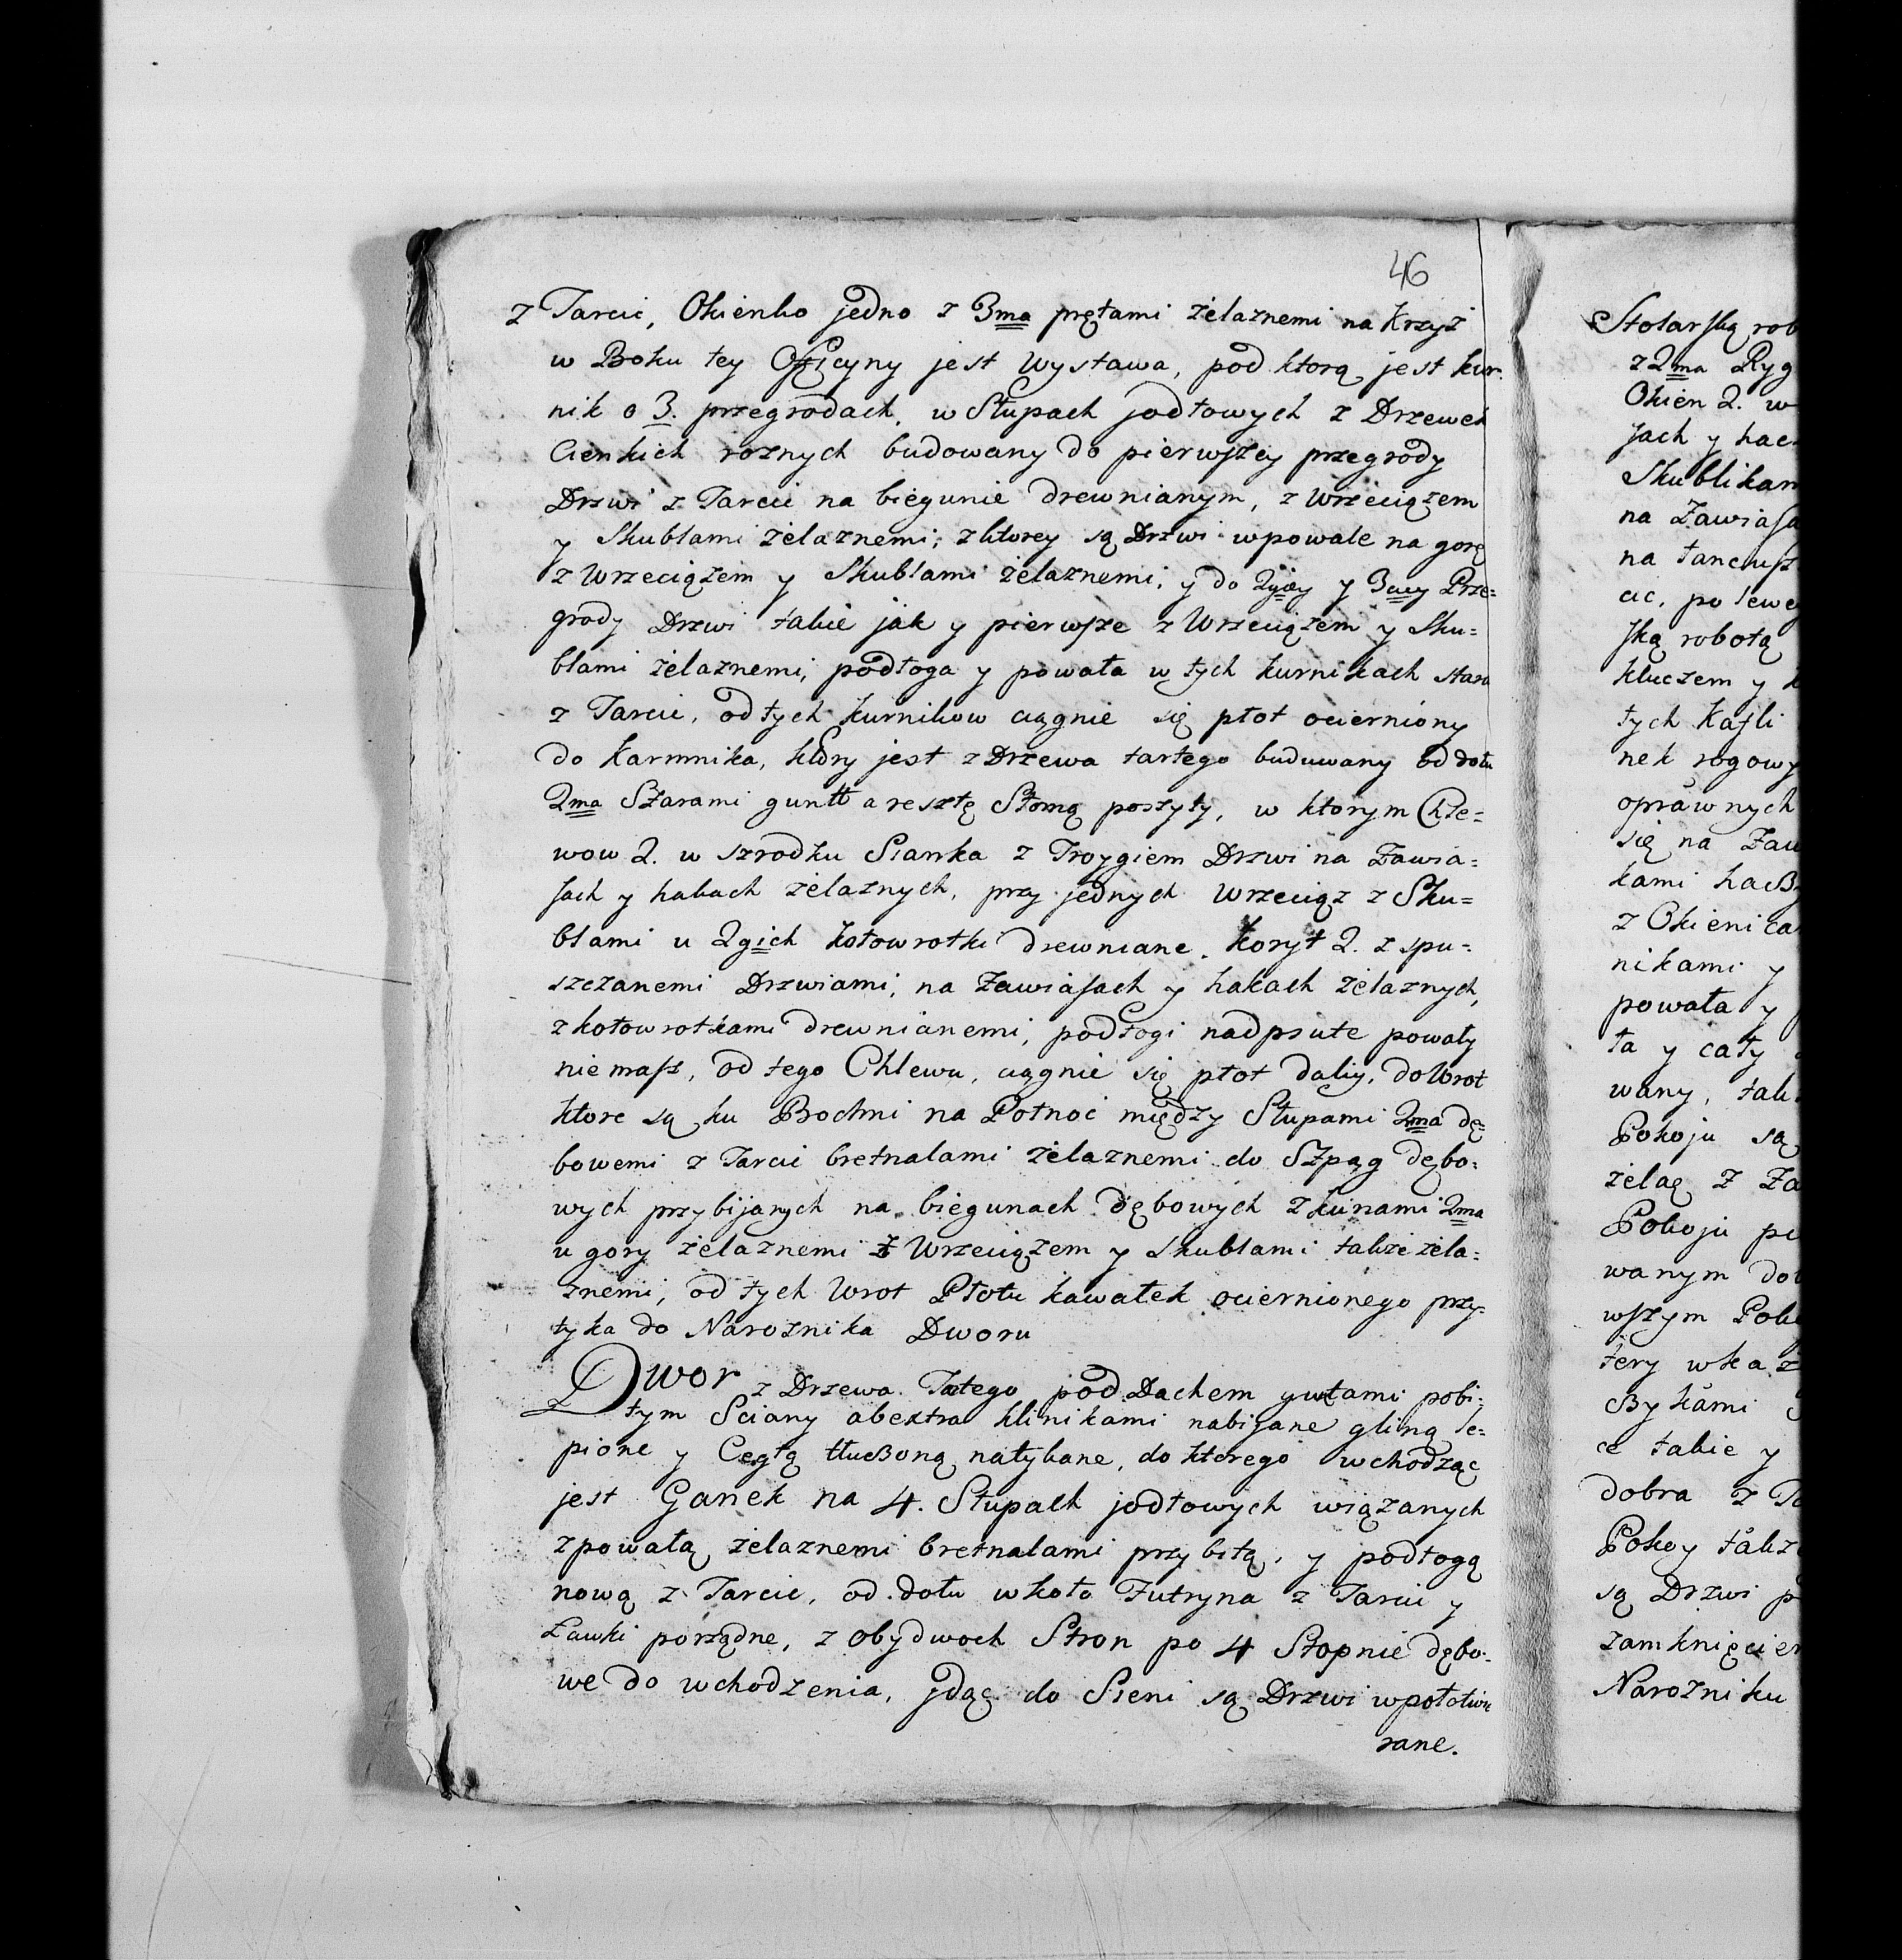 46
z Tarcic, Okienko jedno z 3ma prętami żelaznemi na Krzyż
w Boku tey Officyny jest Wystawa, pod ktorą jest kur-
nik o 3. przegrodach, w Słupach jodłowych z Drzewek
Cienkich roznych budowany do pierwszey przegrody
Drzwi z Tarcic na biegunie drewnianym, z Wrzeciązem
y Skublami żelaznemi; z ktorey są Drzwi wpowale na gorę
z Wrzeciązem y Skublami żelaznemi, y do 2giey y 3ciey Prze=
grody Drzwi takie jak y pierwsze z Wrzeciązem y Sku=
blami żelaznemi, podłoga y powała w tych kurnikach stara
z Tarcic, od tych kurnikow ciągnie się płot ocierniony
do Karmnika, ktory jest z Drzewa tartego buduwany od dołu
2ma Szarami guntt a resztę Słomą poszyty, w ktorym Chle=
wow 2. w szrodku Scianka z Troygiem Drzwi na Zawia=
sach y hakach żelaznych, przy jednych Wrzeciąz z Sku=
blami u 2gich kołowrotki drewniane. Koryt 2. z spu=
szczanemi Drzwiami, na Zawiasach y hakach żelaznych,
z kołowrotkami drewnianemi, podłogi nadpsute powały
niemasz, od tego Chlewu, ciągnie się płot daliy, do Wrot
ktore są ku Bochni na Połnoc między Słupami 2ma dę=
bowemi z Tarcic bretnalami żelaznemi do Szpąg dębo=
wych przybijanych na biegunach dębowych z kunami 2ma
u gory żelaznemi z Wrzeciązem y skublami takze żela=
znemi, od tych Wrot Płotu kawałek ociernionego przy=
tyka do Naroznika Dworu
Dwor z Drzewa Tartego pod Dachem gątami pobi=
tym Sciany abextra klinikami nabijane gliną le=
pione y Cegłą tłuczoną natykane, do ktorego wchodząc
jest Ganek na 4. Słupach jodłowych wiązanych
z powałą żelaznemi bretnalami przybitą, y podłogą
nową z Tarcic, od dołu wkoło Futryna z Tarcic y
Ławki porządne, z obydwoch Stron po 4 Stopnie dębo=
we do wchodzenia, jdąc do Sieni są Drzwi wpołotwie
rane.
Stolarską rob
z 2ma Ryg
Okien 2. w
sach y hac
Skublikam
na Zawiasa
na łancusz
cic, po lewe
ską robotą
kluczem y k
tych Kafli
nek rogowy
oprawnych
się na Zaw
kami
z Okienica
nikami y
powała y
ta y cały
wany, tak
Pokoju są
żelaz z Za
Pokoju
wanym do
wszym Pok
tery wka
y
ce takie y
dobra z Ta
Pokoy takz
są Drzwi p
zamknięcie
Narozniku